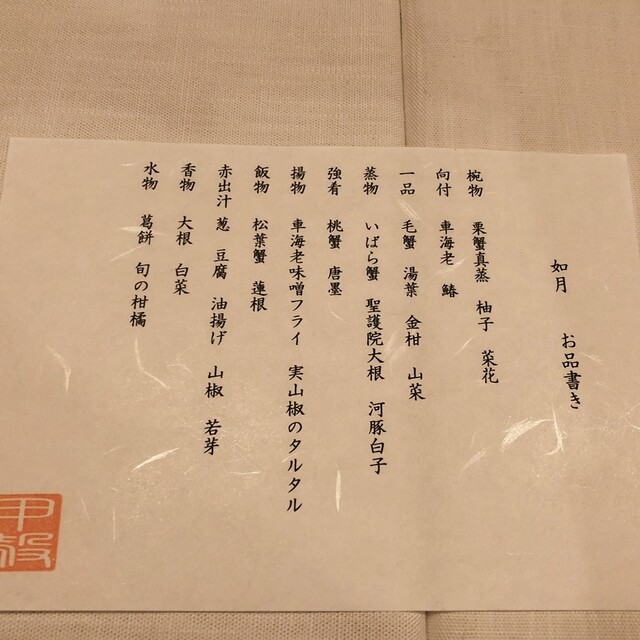 如月 お品書き
椀物 栗蟹真蒸 柚子 菜花
向付 車海老 鰆
一品 毛蟹 湯葉 金柑 山菜
蒸物 いばら蟹 聖護院大根 河豚白子
強肴 桃蟹 唐墨
揚物 車海老味噌フライ 実山椒のタルタル
飯物 松葉蟹 蓮根
赤出汁 葱 豆腐 油揚げ 山椒 若芽
香物 大根 白菜
水物 葛餅 旬の柑橘
甲殻